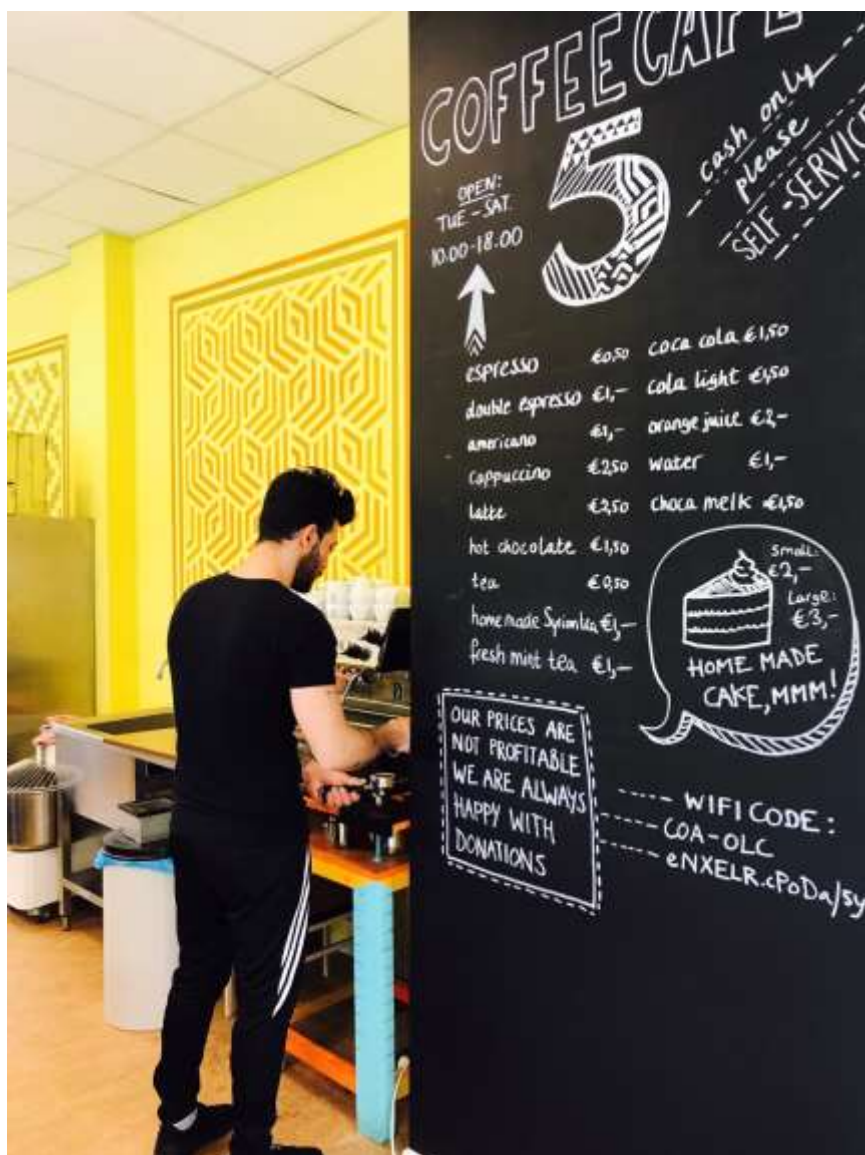 COFFEE CAFE
5
cash only
please
SELF-SERVICE
OPEN:
TUE-SAT
10.00-18.00
espresso €0,50
double espresso €1,-
americano €1,-
cappuccino €2,50
latte €2,50
hot chocolate €1,50
tea €0,50
home made Syrian tea €1,-
fresh mint tea €1,-
coca cola €1,50
cola light €1,50
orange juice €2,-
water €1,-
choca melk €1,50
Small:
€2,-
Large:
€3,-
HOME MADE
CAKE, MMM!
OUR PRICES ARE
NOT PROFITABLE
WE ARE ALWAYS
HAPPY WITH
DONATIONS
WIFI CODE:
COA-OLC
eNXELR.cPoDa/5y